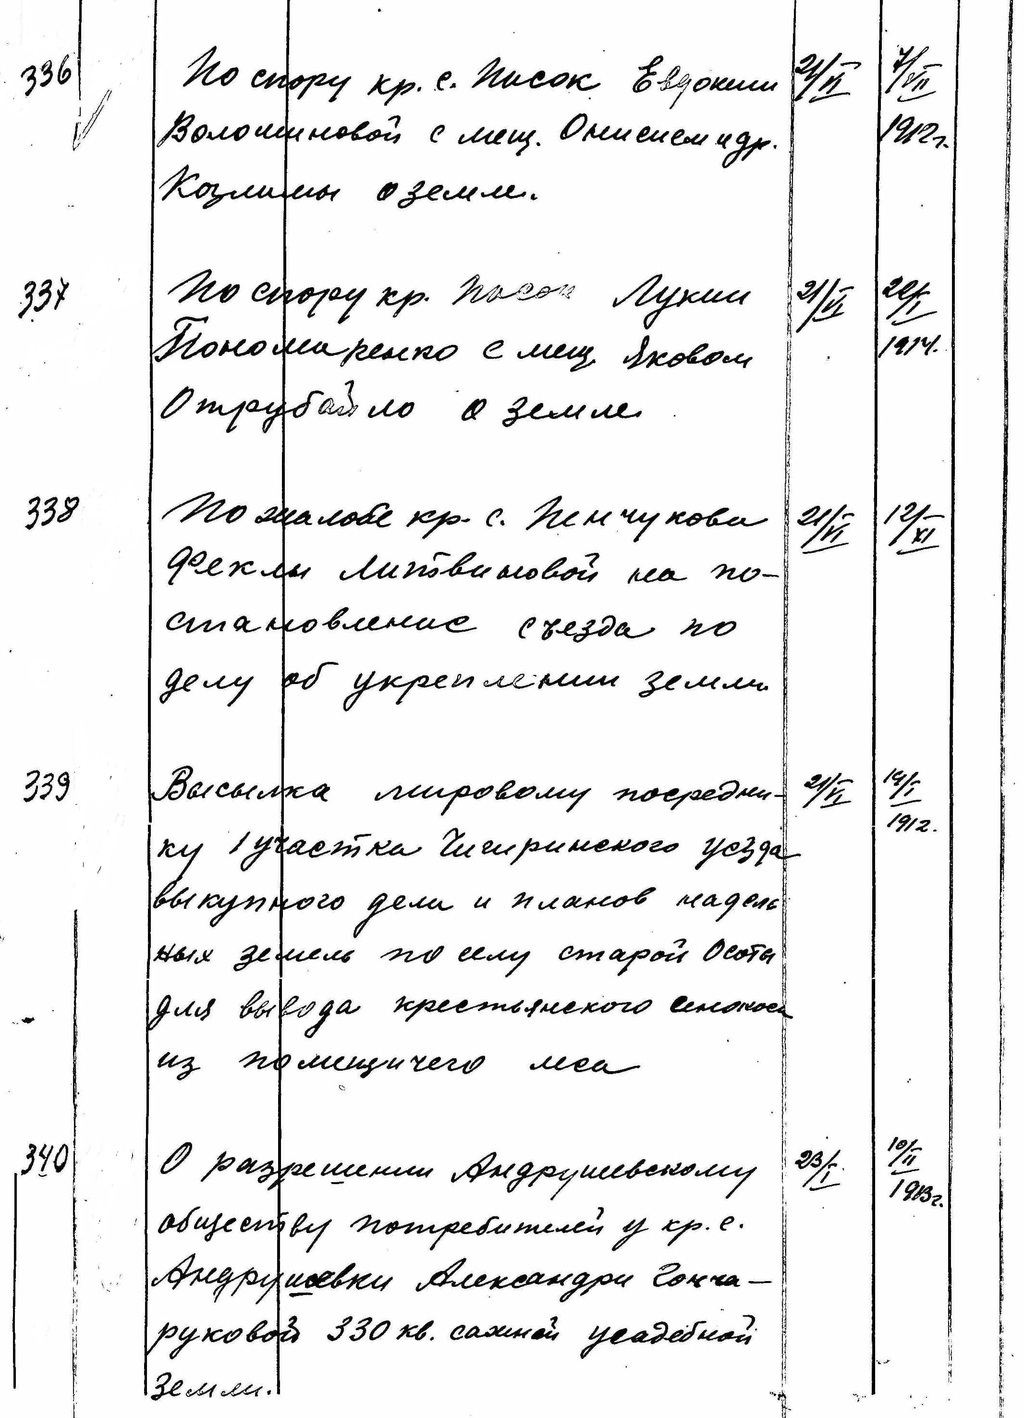 336 По спору кр. с. Писок Евдокии 21/VI 7/VII
Волошиновой с мещ. Онисием и др. 1912 г.
Козлимы о земле.
337 По спору кр. Писок Лукии 21/VI 20/I
Пономаренко с мещ. Яковом 1914.
Отрубайло о земле
338 По жалобе кр. с. Пенчукова 21/VI 12/XI
Феклы Литвиновой на по-
становление съезда по
делу об укреплении земли
339 Высылка мировому посредни- 21/VI 14/I
ку 1 участка Чигиринского уезда 1912.
выкупного дела и планов надель
ных земель по селу старой Осоты
для вывода крестьянского сенокоса
из помещичего леса
340 О разрешении Андрушевскому 23/I. 10/II
обществу потребителей у кр. с. 1913 г.
Андрушевки Александры Гонча-
руковой 330 кв. сажней усадебной
земли.